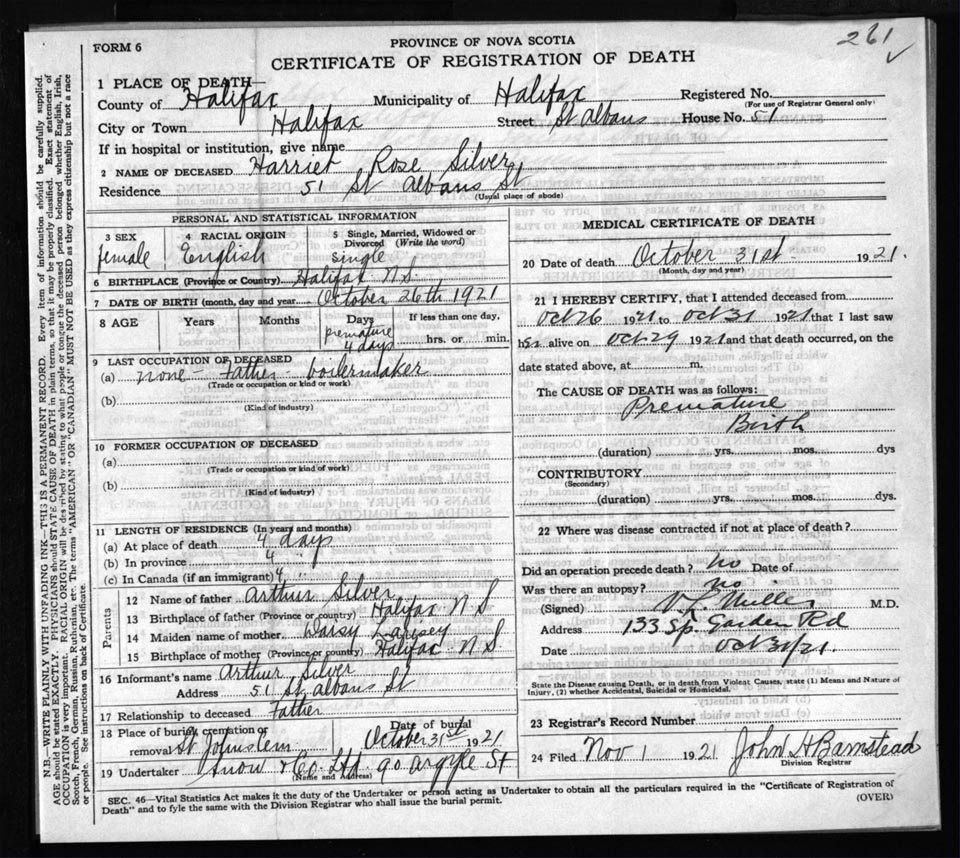 261 ✓
FORM 6
PROVINCE OF NOVA SCOTIA
CERTIFICATE OF REGISTRATION OF DEATH
1 PLACE OF DEATH—
County of Halifax Municipality of Halifax Registered No.
(For use of Registrar General only)
City or Town Halifax Street St Albans House No. 51
If in hospital or institution, give name
2 NAME OF DECEASED Harriet Rose Silver
Residence 51 St Albans St
(Usual place of abode)
PERSONAL AND STATISTICAL INFORMATION
3 SEX 4 RACIAL ORIGIN 5 Single, Married, Widowed or
Divorced (Write the word)
female English single
6 BIRTHPLACE (Province or Country) Halifax N.S.
7 DATE OF BIRTH (month, day and year) October 26th 1921
8 AGE Years Months Days If less than one day,
premature
4 days hrs. or min.
9 LAST OCCUPATION OF DECEASED
(a) none - Father - boilermaker
(Trade or occupation or kind or work)
(b)
(Kind of industry)
10 FORMER OCCUPATION OF DECEASED
(a)
(Trade or occupation or kind of work)
(b)
(Kind of industry)
11 LENGTH OF RESIDENCE (In years and months)
(a) At place of death 4 days
(b) In province 4
(c) In Canada (if an immigrant) 4
Parents
12 Name of father Arthur Silver
13 Birthplace of father (Province or country) Halifax N S
14 Maiden name of mother Daisy
15 Birthplace of mother (Province or country) Halifax N.S.
16 Informant's name Arthur Silver
Address 51 St Albans St
17 Relationship to deceased Father
18 Place of burial, cremation or Date of burial
removal St Johns Cem October 31st 1921
19 Undertaker Snow & Co. Ltd. 90 Argyle St
(Name and Address)
MEDICAL CERTIFICATE OF DEATH
20 Date of death October 31st 1921.
(Month, day and year)
21 I HEREBY CERTIFY, that I attended deceased from
Oct 26 1921 to Oct 31 1921 that I last saw
h alive on Oct 29 1921 and that death occurred, on the
date stated above, at m.
The CAUSE OF DEATH was as follows:
Premature
Birth
(duration) yrs. mos. dys
CONTRIBUTORY
(Secondary)
(duration) yrs. mos. dys.
22 Where was disease contracted if not at place of death?
Did an operation precede death? No Date of
Was there an autopsy? no
(Signed) V L Miller M.D.
Address 133 Sp. Garden Rd
Date Oct 31/21.
State the Disease causing Death, or in death from Violent Causes, state (1) Means and Nature of
Injury, (2) whether Accidental, Suicidal or Homicidal.
23 Registrar's Record Number
24 Filed Nov 1 1921 John H Barnstead
Division Registrar
SEC. 46—Vital Statistics Act makes it the duty of the Undertaker or person acting as Undertaker to obtain all the particulars required in the "Certificate of Registration of
Death" and to fyle the same with the Division Registrar who shall issue the burial permit.
(OVER)
N.B.—WRITE PLAINLY WITH UNFADING INK—THIS IS A PERMANENT RECORD. Every item of information should be carefully supplied.
AGE should be stated EXACTLY. PHYSICIANS should STATE CAUSE OF DEATH in plain terms, so that it may be properly classified. Exact statement of
OCCUPATION is very important. RACIAL ORIGIN will be described by stating to what people or tongue the deceased person belonged whether English, Irish,
Scotch, French, German, Russian, Ruthenian, etc. The terms "AMERICAN" OR "CANADIAN" MUST NOT BE USED as they express citizenship but not a race
or people. See instructions on back of Certificate.